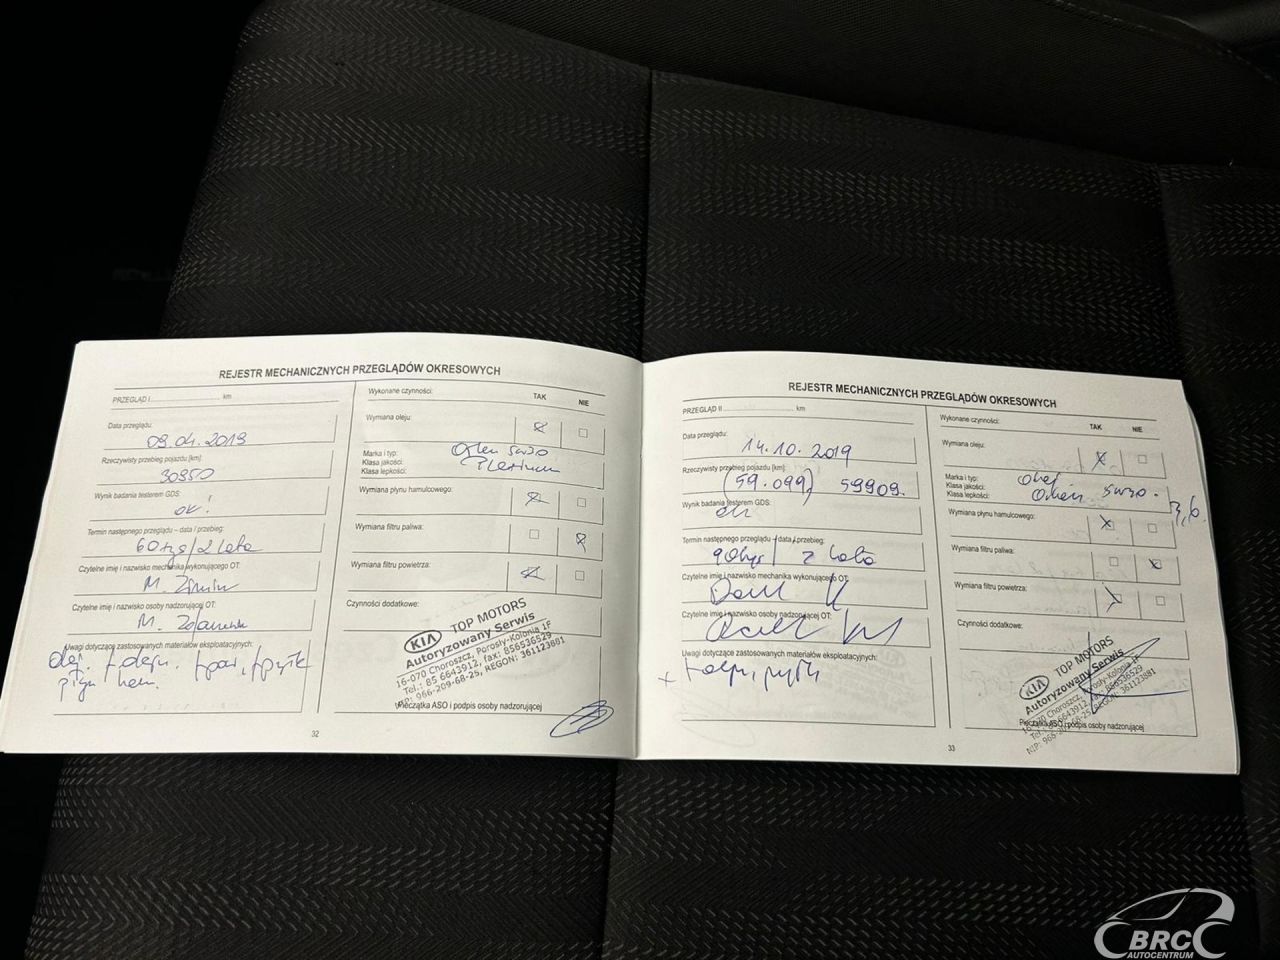 REJESTR MECHANICZNYCH PRZEGLĄDÓW OKRESOWYCH
PRZEGLĄD I .......................... km
Data przeglądu:
09.04.2019
Rzeczywisty przebieg pojazdu [km]:
30950
Wynik badania testerem GDS:
ok.
Termin następnego przeglądu – data / przebieg:
60 tyś/2 lata
Czytelne imię i nazwisko mechanika wykonującego OT:
M.
Czytelne imię i nazwisko osoby nadzorującej OT:
M.
Uwagi dotyczące zastosowanych materiałów eksploatacyjnych:
olej. f.oleju.
płyn ham.
Wykonane czynności:
TAK
NIE
Wymiana oleju:
Marka i typ:
Klasa jakości:
Klasa lepkości:
Orlen 5W30
Platinum
Wymiana płynu hamulcowego:
Wymiana filtru paliwa:
Wymiana filtru powietrza:
Czynności dodatkowe:
KIA TOP MOTORS
Autoryzowany Serwis
16-070 Choroszcz, Porosły-Kolonia 1F
Tel.: 85 6643912, fax: 856536529
NIP: 966-209-68-25, REGON: 361123881
Pieczątka ASO i podpis osoby nadzorującej
32
REJESTR MECHANICZNYCH PRZEGLĄDÓW OKRESOWYCH
PRZEGLĄD II .......................... km
Data przeglądu:
14.10.2019
Rzeczywisty przebieg pojazdu [km]:
(59.099) 59909.
Wynik badania testerem GDS:
Termin następnego przeglądu – data / przebieg:
2 lata
Czytelne imię i nazwisko mechanika wykonującego OT:
Czytelne imię i nazwisko osoby nadzorującej OT:
Uwagi dotyczące zastosowanych materiałów eksploatacyjnych:
Wykonane czynności:
TAK
NIE
Wymiana oleju:
Marka i typ:
Klasa jakości:
Klasa lepkości:
olej
Orlen 5W30.
3,6.
Wymiana płynu hamulcowego:
Wymiana filtru paliwa:
Wymiana filtru powietrza:
Czynności dodatkowe:
KIA TOP MOTORS
Autoryzowany Serwis
16-070 Choroszcz, Porosły-Kolonia 1F
Tel.: 85 6643912, fax: 856536529
NIP: 966-209-68-25, REGON: 361123881
Pieczątka ASO i podpis osoby nadzorującej
33
BRC
AUTOCENTRUM